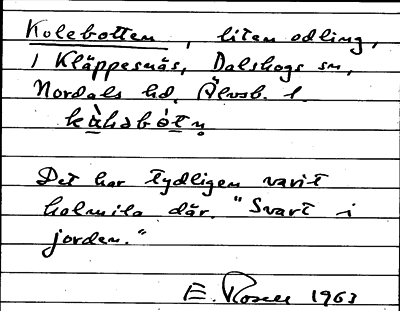 Kolebotten, liten odling,
i Kläppesnäs, Dalskogs sn,
Nordals hd, Älvsb. l.
kàlsbòtn̥
Det har tydligen varit
kolmila där. "Svart i
jorden."
E. Rosell 1963